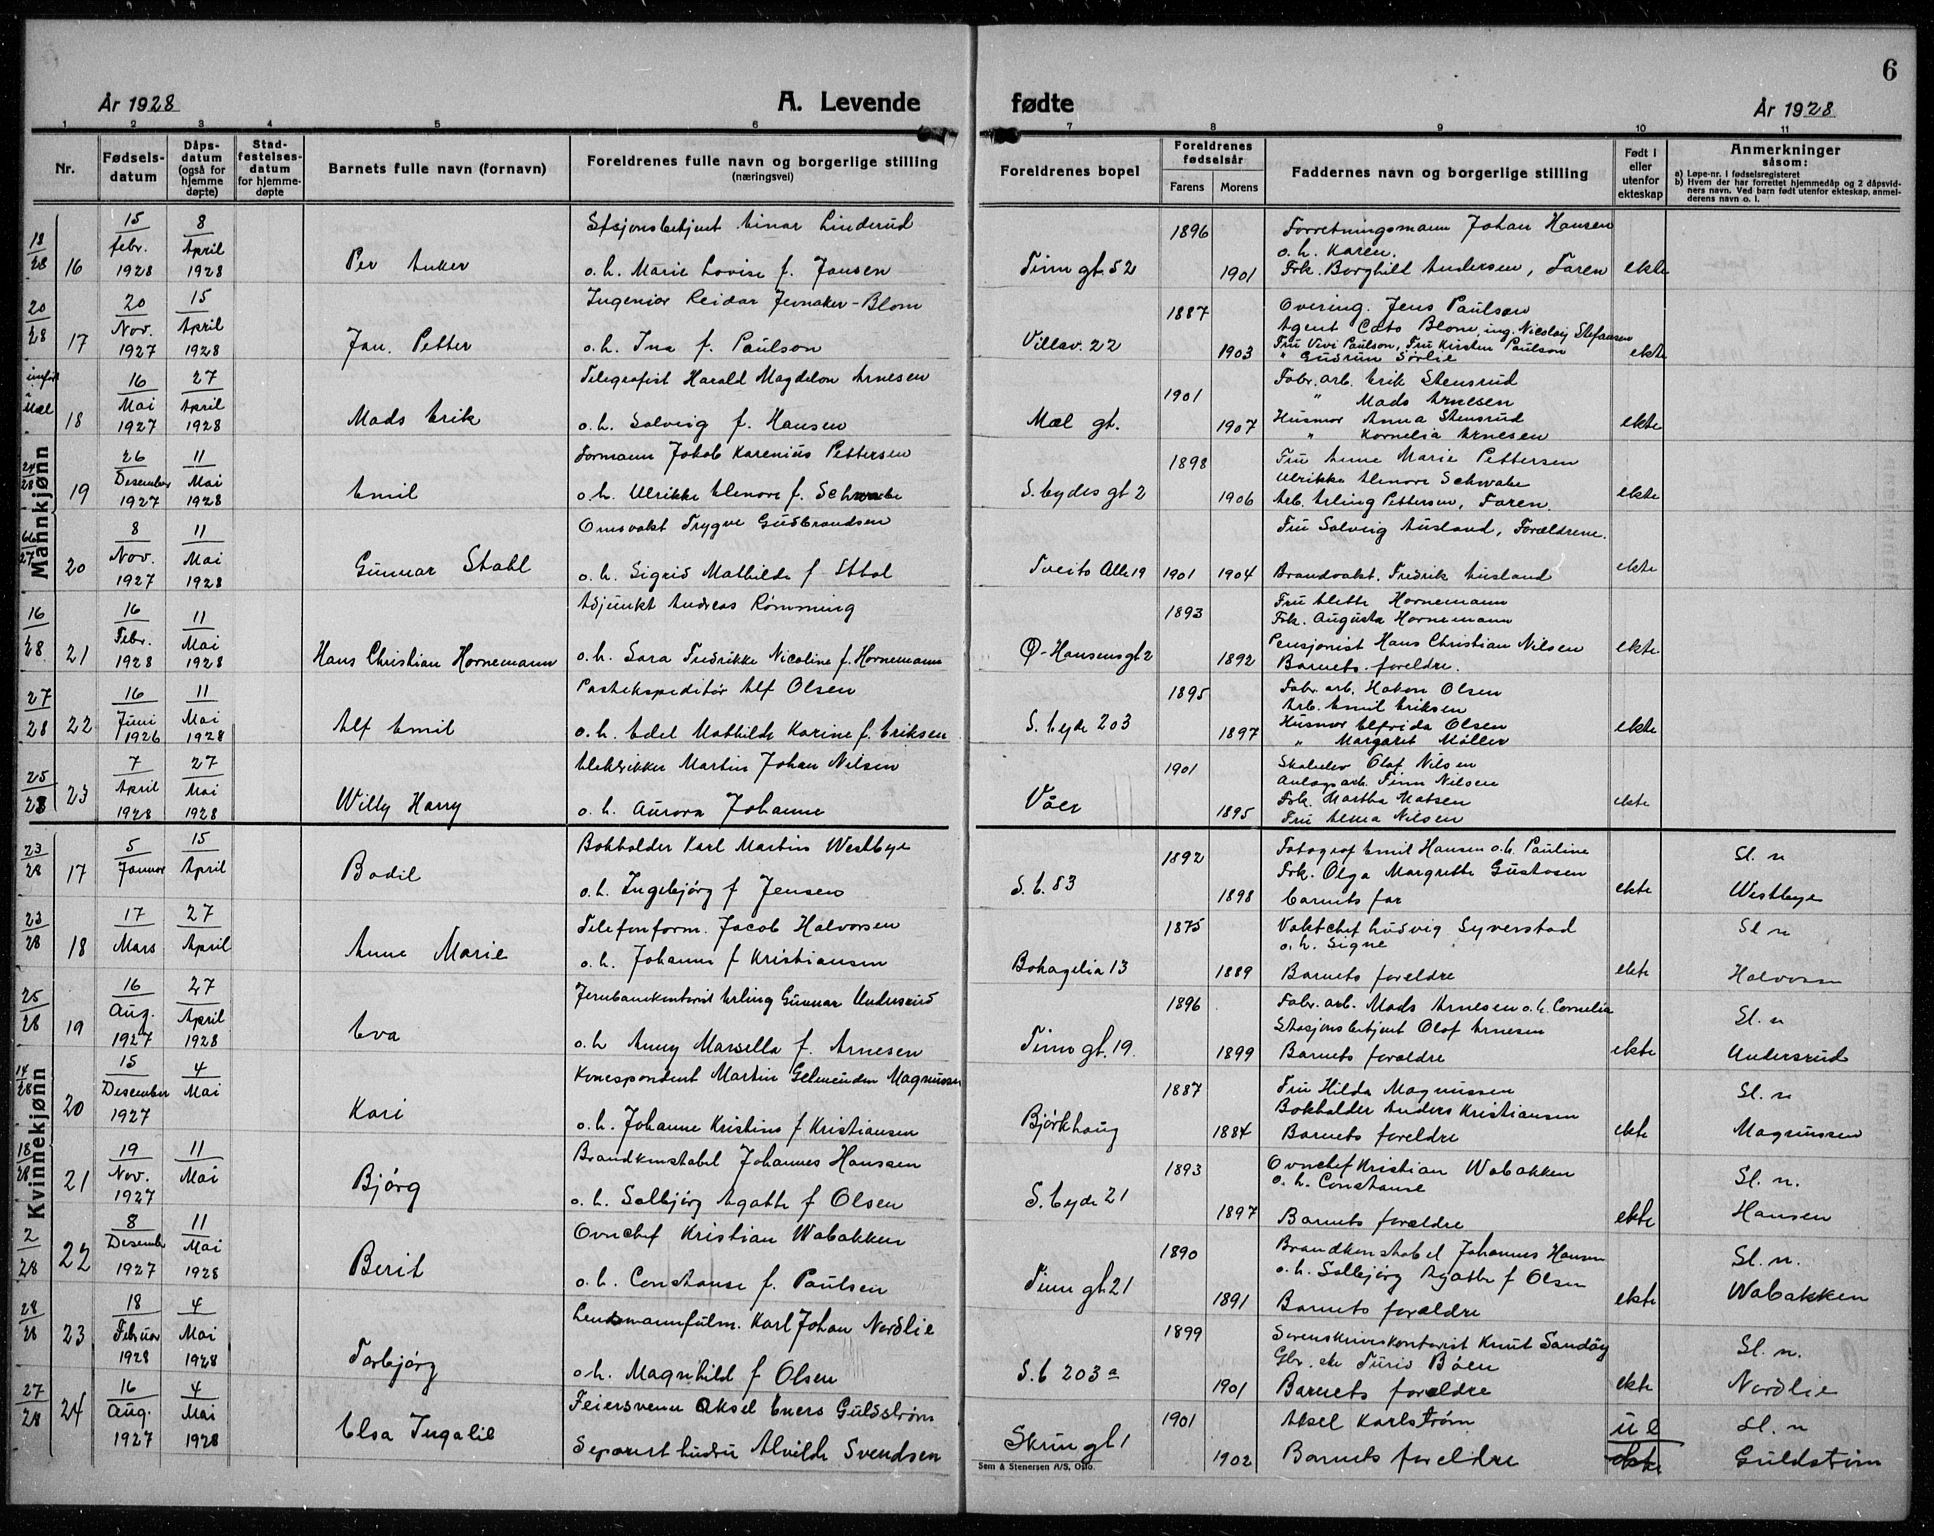 År 1928
A. Levende
fødte
År 1928
6
1 2 3 4 5 6 7 8 9 10 11
Nr.
Fødsels-
datum
Dåps-
datum
(også for
hjemme
døpte)
Stad-
festelses-
datum
for hjemme-
døpte
Barnets fulle navn (fornavn)
Foreldrenes fulle navn og borgerlige stilling
(næringsvei)
Foreldrenes bopel
Foreldrenes
fødselsår
Farens Morens
Faddernes navn og borgerlige stilling
Født i
eller
utenfor
ekteskap
Anmerkninger
såsom:
a) Løpe-nr. i fødselsregisteret
b) Hvem der har forrettet hjemmedåp og 2 dåpsvid-
ners navn. Ved barn født utenfor ekteskap, anmel-
derens navn o. l.
Mannkjønn
18/28 16 15 febr. 1928 8 April 1928 Per Anker
Stasjonsbetjent Einar Linderud
o. h. Marie Lovise f. Jansen
Tinngt. 52 1896 1901
Forretningsmann Johan Hansen
o. h. Karen.
Frk. Borghild Andersen, Faren ekte
20/28 17 20 Nov. 1927 15 April 1928 Jan. Petter
Ingeniør Reidar Jernaker-Blom
o. h. Ina f. Paulson
Villav. 22 1887 1903
Overing. Jens Paulsen
Agent Cato Blom, ing. Nicolay Stefansen
Fru Vivi Paulson, Fru Kirsten Paulson
" Gudrun Sørlie ekte
18 16 Mai 1927 27 April 1928 Mads Erik
Telegrafist Harald Magdelon Arnesen
o. h. Solveig f. Hansen
Mæl gt. 1901 1907
Fabr. arb. Erik Stensrud
" Mads Arnesen
Husmor Anna Stensrud
" Kornelia Arnesen ekte
24/28 19 26 Desember 1927 11 Mai 1928 Emil
Formann Jakob Karenius Pettersen
o. h. Ulrikke Elenore f. Schwabe
S. Eydes gt 2 1898 1906
Fru Anne Marie Pettersen
Ulrikke Elenore Schwabe
Arb. Erling Pettersen, Faren. ekte
20 8 Nov. 1927 11 Mai 1928 Gunnar Stahl
Omsvakt Trygve Gudbrandsen
o. h. Sigrid Mathilde f
Tveito Alle 19 1901 1904
Fru Solveig Ausland, Forældrene.
Brandvakt. Fredrik Ausland ekte
16/28 21 16 Febr. 1928 11 Mai 1928 Hans Christian Hornemann
Adjunkt Andreas Rømming
o. h. Sara Fredrikke Nicoline f. Hornemann
Ø-Hansensgt 2 1893 1892
Fru Alette Hornemann
Frk. Augusta Hornemann
Pensjonist Hans Christian Nilsen
Barnets foreldre. ekte
27/28 22 16 Juni 1926 11 Mai 1928 Alf Emil
Postekspeditør Alf Olsen
o. h. Edel Mathilde Karine f. Eriksen
S. Eyde 203 1895 1897
Fabr. arb. Hakon Olsen
Arb. Emil Eriksen
Husmor Elfrida Olsen
" Margaret Møller ekte
25/28 23 7 April 1928 27 Mai 1928 Willy Harry
Elektriker Martin Johan Nilsen
o. h. Aurora Johanne
Våer 1901 1895
Skoleelev Olaf Nilsen
Anlagsarb. Finn Nilsen
Frk. Martha Matsen
Fru Alma Nilsen ekte
Kvinnekjønn
23/28 17 5 Januar 15 April Bodil
Bokholder Karl Martin Westbye
o. h. Ingebjørg f Jensen
S. E. 83 1892 1898
Fotograf Emil Hansen o. h. Pauline
Frk. Olga Margrethe Gustavsen
barnets far ekte
Sl. n
Westbye
23/28 18 17 Mars 27 April Anne Marie
Telefonform. Jacob Halvorsen
o. h. Johanne f Kristiansen
Bøhagelia 13 1875 1889
Vaktchef Ludvig Syverstad
o. h. Signe
Barnets foreldre ekte
Sl n
Halvorsen
25/28 19 16 Aug. 1927 27 April 1928 Eva
Jernbanekontorist Erling Gunnar Undersrud
o. h Anny Marsella f. Arnesen
Tinngt. 19. 1896 1899
Fabr. arb. Mads Arnesen o. h. Cornelia
Stasjonsbetjent Olaf Arnesen
Barnets foreldre ekte
Sl. n
Undersrud
14/28 20 15 Desember 1927 4 Mai Kari
Korrespondent Martin Gelmeiden Magnussen
o. h. Johanne Kristine f Kristiansen
Bjørkhaug 1887 1884
Fru Hilda Magnussen
Bokholder Anders Kristiansen
Barnets foreldre ekte
Sl. n
Magnussen
18/28 21 19 Nov. 1927 11 Mai Bjørg
Brandkonstabel Johannes Hanssen
o. h. Solbjørg Agathe f Olsen
S. Eyde 21 1893 1897
Ovnchef Kristian Wabakken
o. h. Constanse
Barnets foreldre ekte
Sl. n.
Hansen
2/28 22 8 Desember 1927 11 Mai 1928 Berit
Ovnchef Kristian Wabakken
o. h. Constanse f. Paulsen
Tinngt 21 1890 1891
Brandkonstabel Johannes Hansen
o. h. Solbjørg Agathe f Olsen
Barnets foreldre ekte
Sl. n.
Wabakken
28/28 23 18 Februar 1928 4 Mai 1928 Torbjørg
Lensmannfulm. Karl Johan Nordlie
o. h. Magnhild f Olsen
S. E 203 a 1899 1901
Sorenskriverkontorist Knut Sandøy
Turid Bøen
Barnets foreldre ekte
Sl. n.
Nordlie
27/28 24 16 Aug. 1927 4 Mai 1928 Elsa Ingalil
Feiersvenn Aksel Eners Guldstrøm
Separert hustru Alvilde Svendsen
Skrim gt 1 1901 1902
Aksel Karlstrøm
Barnets foreldre
u e
ekte
Sl. n
Guldstrøm
Sem & Stenersen A/S, Oslo.